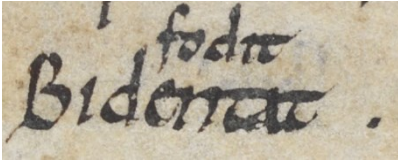 fodit
Bidentat.